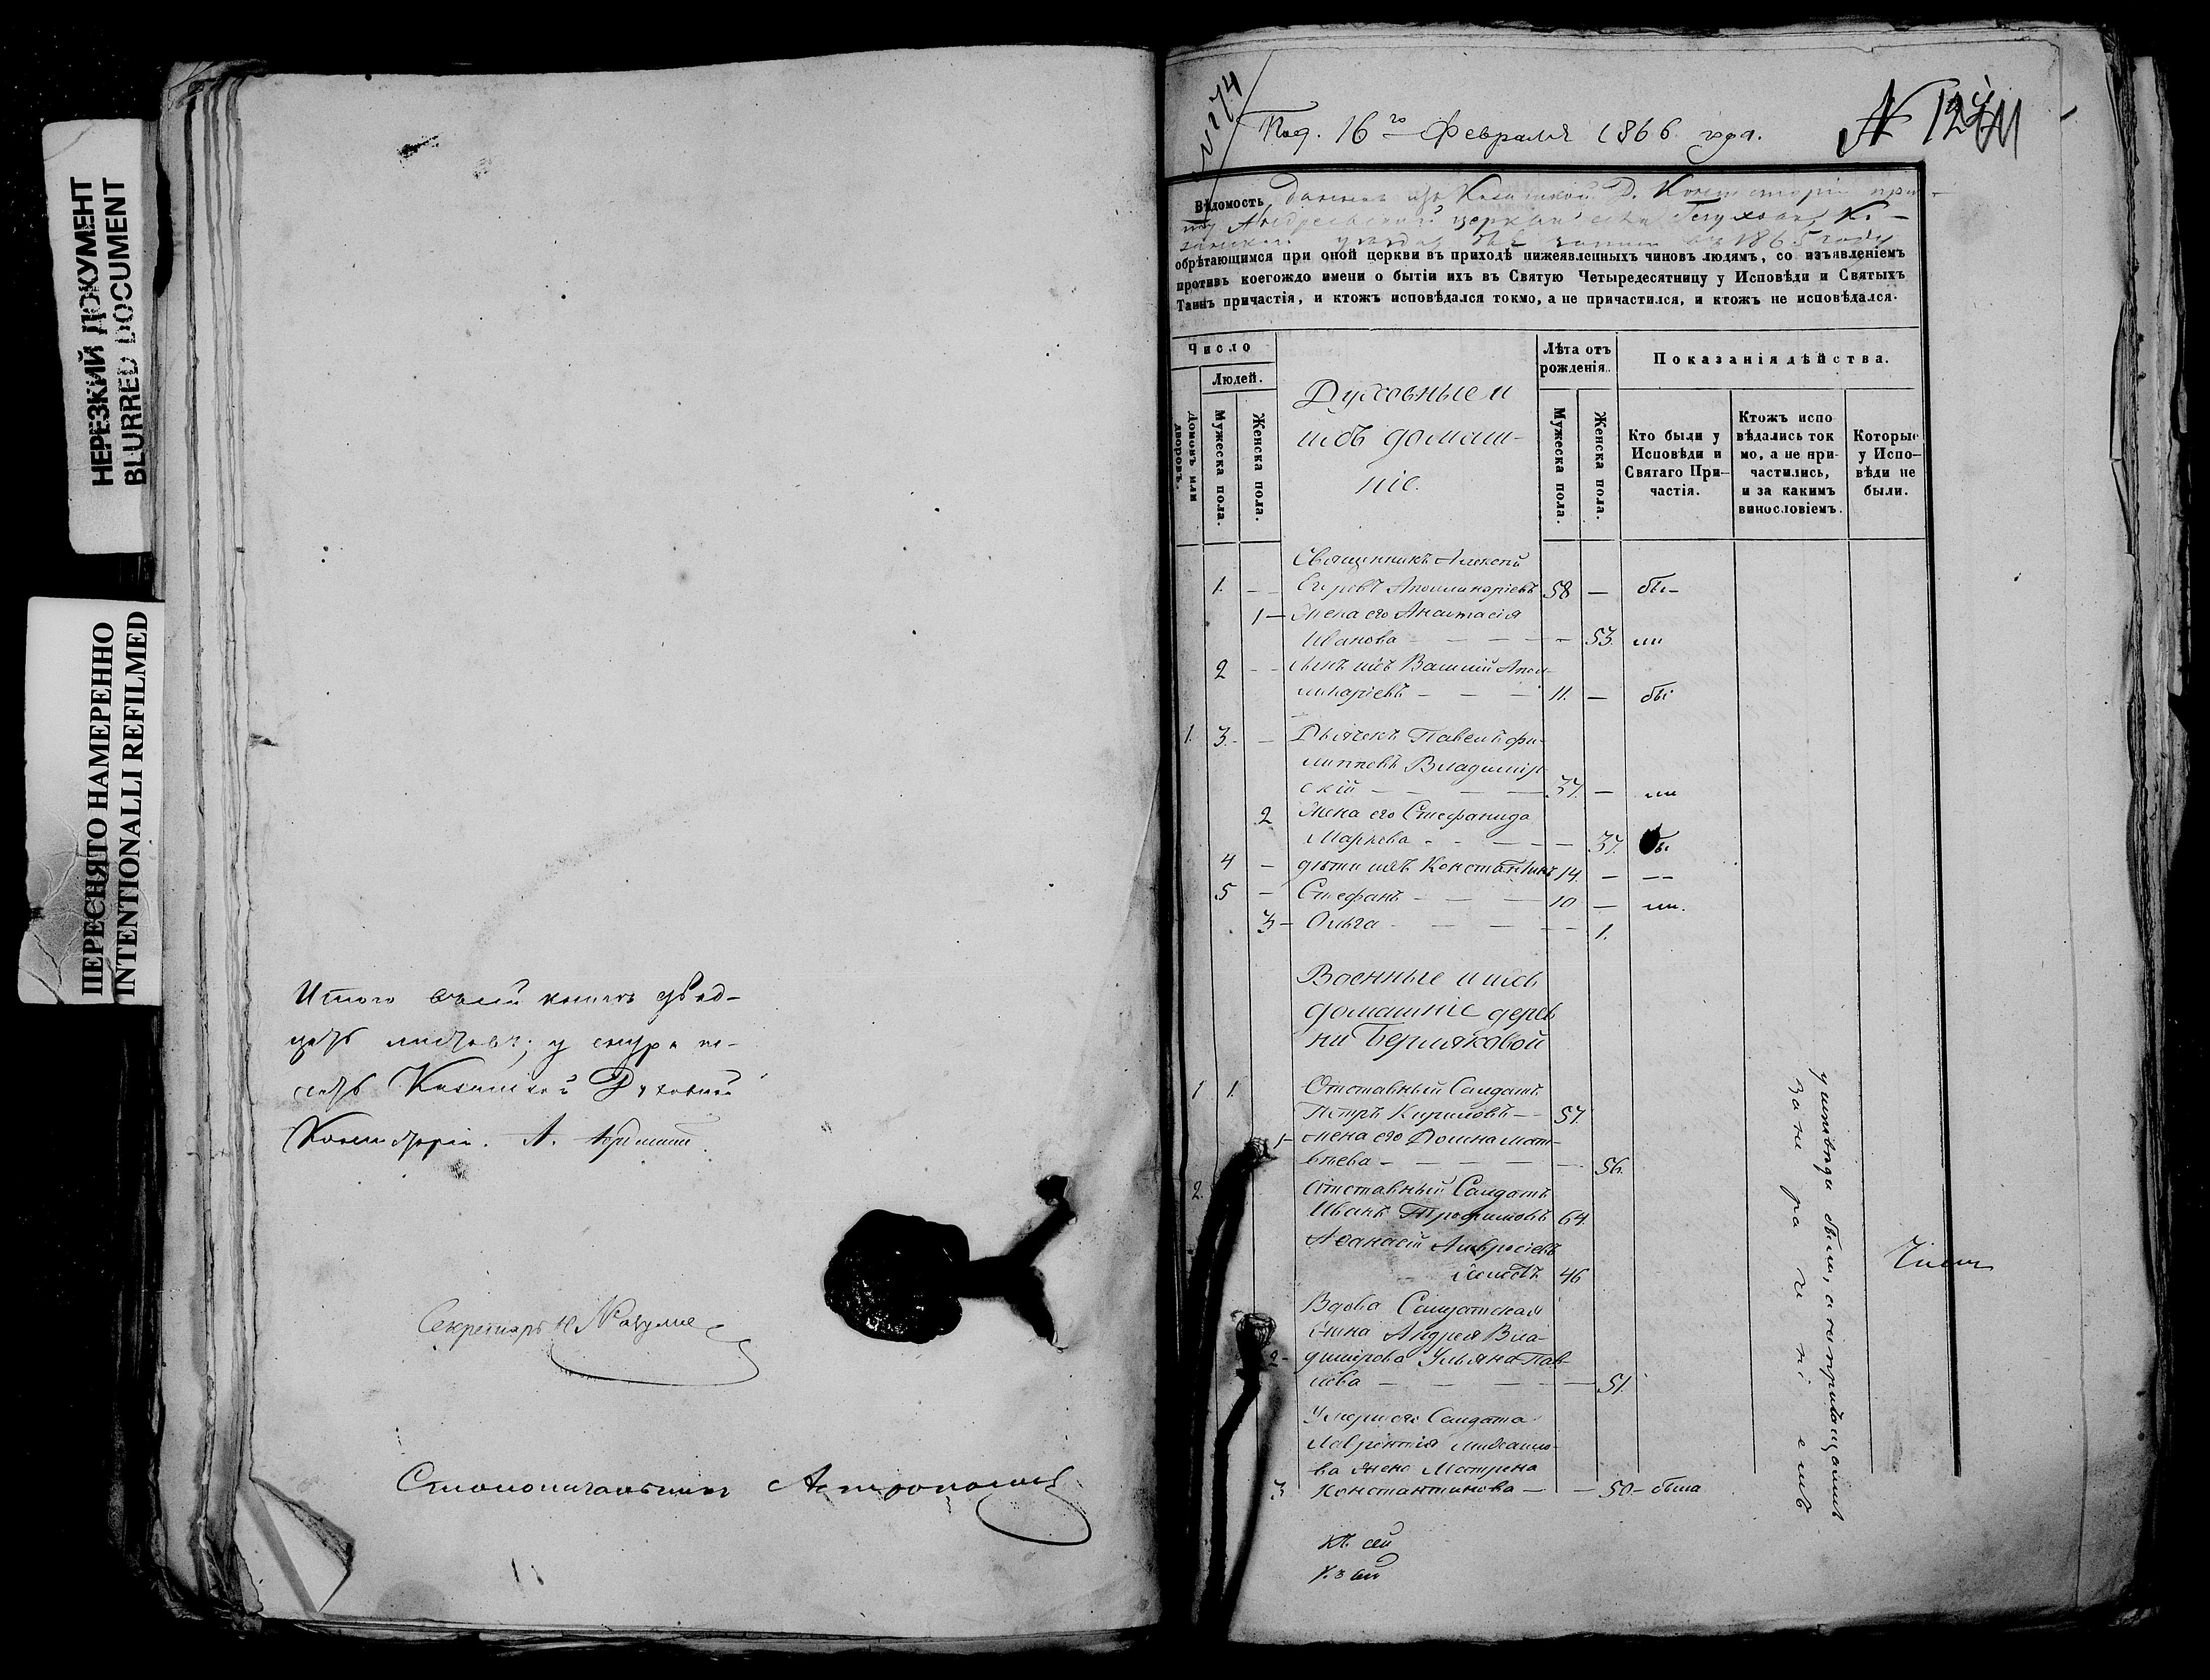 НЕРЕЗКИЙ ДОКУМЕНТ
BLURRED DOCUMENT
ПЕРЕСНЯТО НАМЕРЕННО
INTENTIONALLI REFILMED
Итого въ сей книгѣ двад-
цать листовъ; у шнура пе-
чать Казанской Духовной
Консисторіи.
Секретарь
Столоначальникъ
№ 174
Под. 16го Февраля 1866 года.
№
Вѣдомость данная изъ Казанской Д. Консисторіи
Андреевской церкви села
уѣзда въ 1865 году
обрѣтающимся при оной церкви въ приходѣ нижеявленныхъ чиновъ людямъ, со изъявленіемъ
противъ коегождо имени о бытіи ихъ въ Святую Четыредесятницу у Исповѣди и Святыхъ
Таинъ причастія, и ктожъ исповѣдался токмо, а не причастился, и ктожъ не исповѣдался.
Число
Людей.
Домовъ или дворовъ.
Мужеска пола.
Женска пола.
Духовные и
ихъ домаш-
ніе.
Лѣта отъ рожденія.
Мужеска пола.
Женска пола.
Показанія дѣйства.
Кто были у Исповѣди и Святаго При-частія.
Ктожъ испо вѣдались ток мо, а не при-частились, и за какимъ винословіемъ.
Которые у Испо-вѣди не были.
Священникъ Алексѣй
1. — Егоровъ Аполинаріевъ 58 —
1 — Жена его Анастасія
Иванова — — — 53.
2 — сынъ ихъ Василій Апол-
линаріевъ — — — 11. —
1. 3. — Дьячекъ Павелъ Фи-
липповъ Владимір
скій — — — 37. —
2 Жена его Стефанида
Маркова — — — 37.
4 — дѣти ихъ Константинъ 14. — —
5 — Стефанъ — — — 10 —
3 — Ольга — — — 1.
Военные и ихъ
домашніе дерев
ни Бермяковой
1 1. Отставный Солдатъ
Петръ Кириловъ — 57.
1 — жена его Домна Мат-
вѣева — — — 56.
2. Отставный Солдатъ
Иванъ Трофимовъ 64.
46
Вдова Солдатская
Андрея Вла-
2 — димірова Ульяна Пав-
лова — — — 51.
Умершаго Солдата
Лаврентія Михаило-
ва жена Матрена
3 Константинова — — 50 — была
у исповѣди были, а не причащались
за не ра че ні емъ